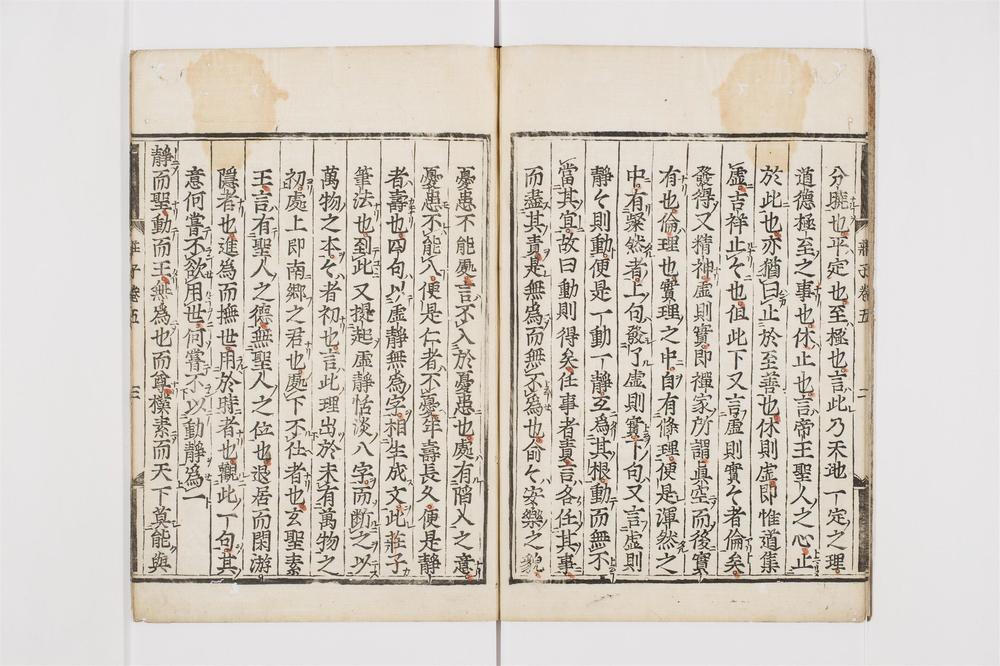 分曉也平定也至極也言此乃天地一定之理
道德極至之事也休止也言帝王聖人之心止
於此也亦猶曰止於至善也休則虛即惟道集
虛吉祥止々也但此下又言虛則實々者倫矣
發得又精神虛則實即禪家所謂真空而後實
有也倫理也實理之中自有條理便是渾然之
中有粲然者上句發了虛則實下句又言虛則
靜々則動便是一動一靜互為其根動而無不
當其宜故曰動則得矣任事者責言各任其事
而盡其責是無為而無不為也俞々安樂之貌
憂患不能處言不入於憂患也處有陷入之意
憂患不能入便是仁者不憂年壽長久便是靜
者壽也四句以虛靜無為字相生成文此莊子
筆法也到此又提起虛靜恬淡八字而斷之以
萬物之本々者初也言此理出於未有萬物之
初處上即南鄉之君也處下不仕者也玄聖素
王言有聖人之德無聖人之位也退居而閑游
隱者也進為而撫世用於時者也觀此一句其
意何嘗不欲用世何嘗不以動靜為一
靜而聖動而王無為也而尊樸素而天下莫能與
莊子卷五
二
莊子卷五
三